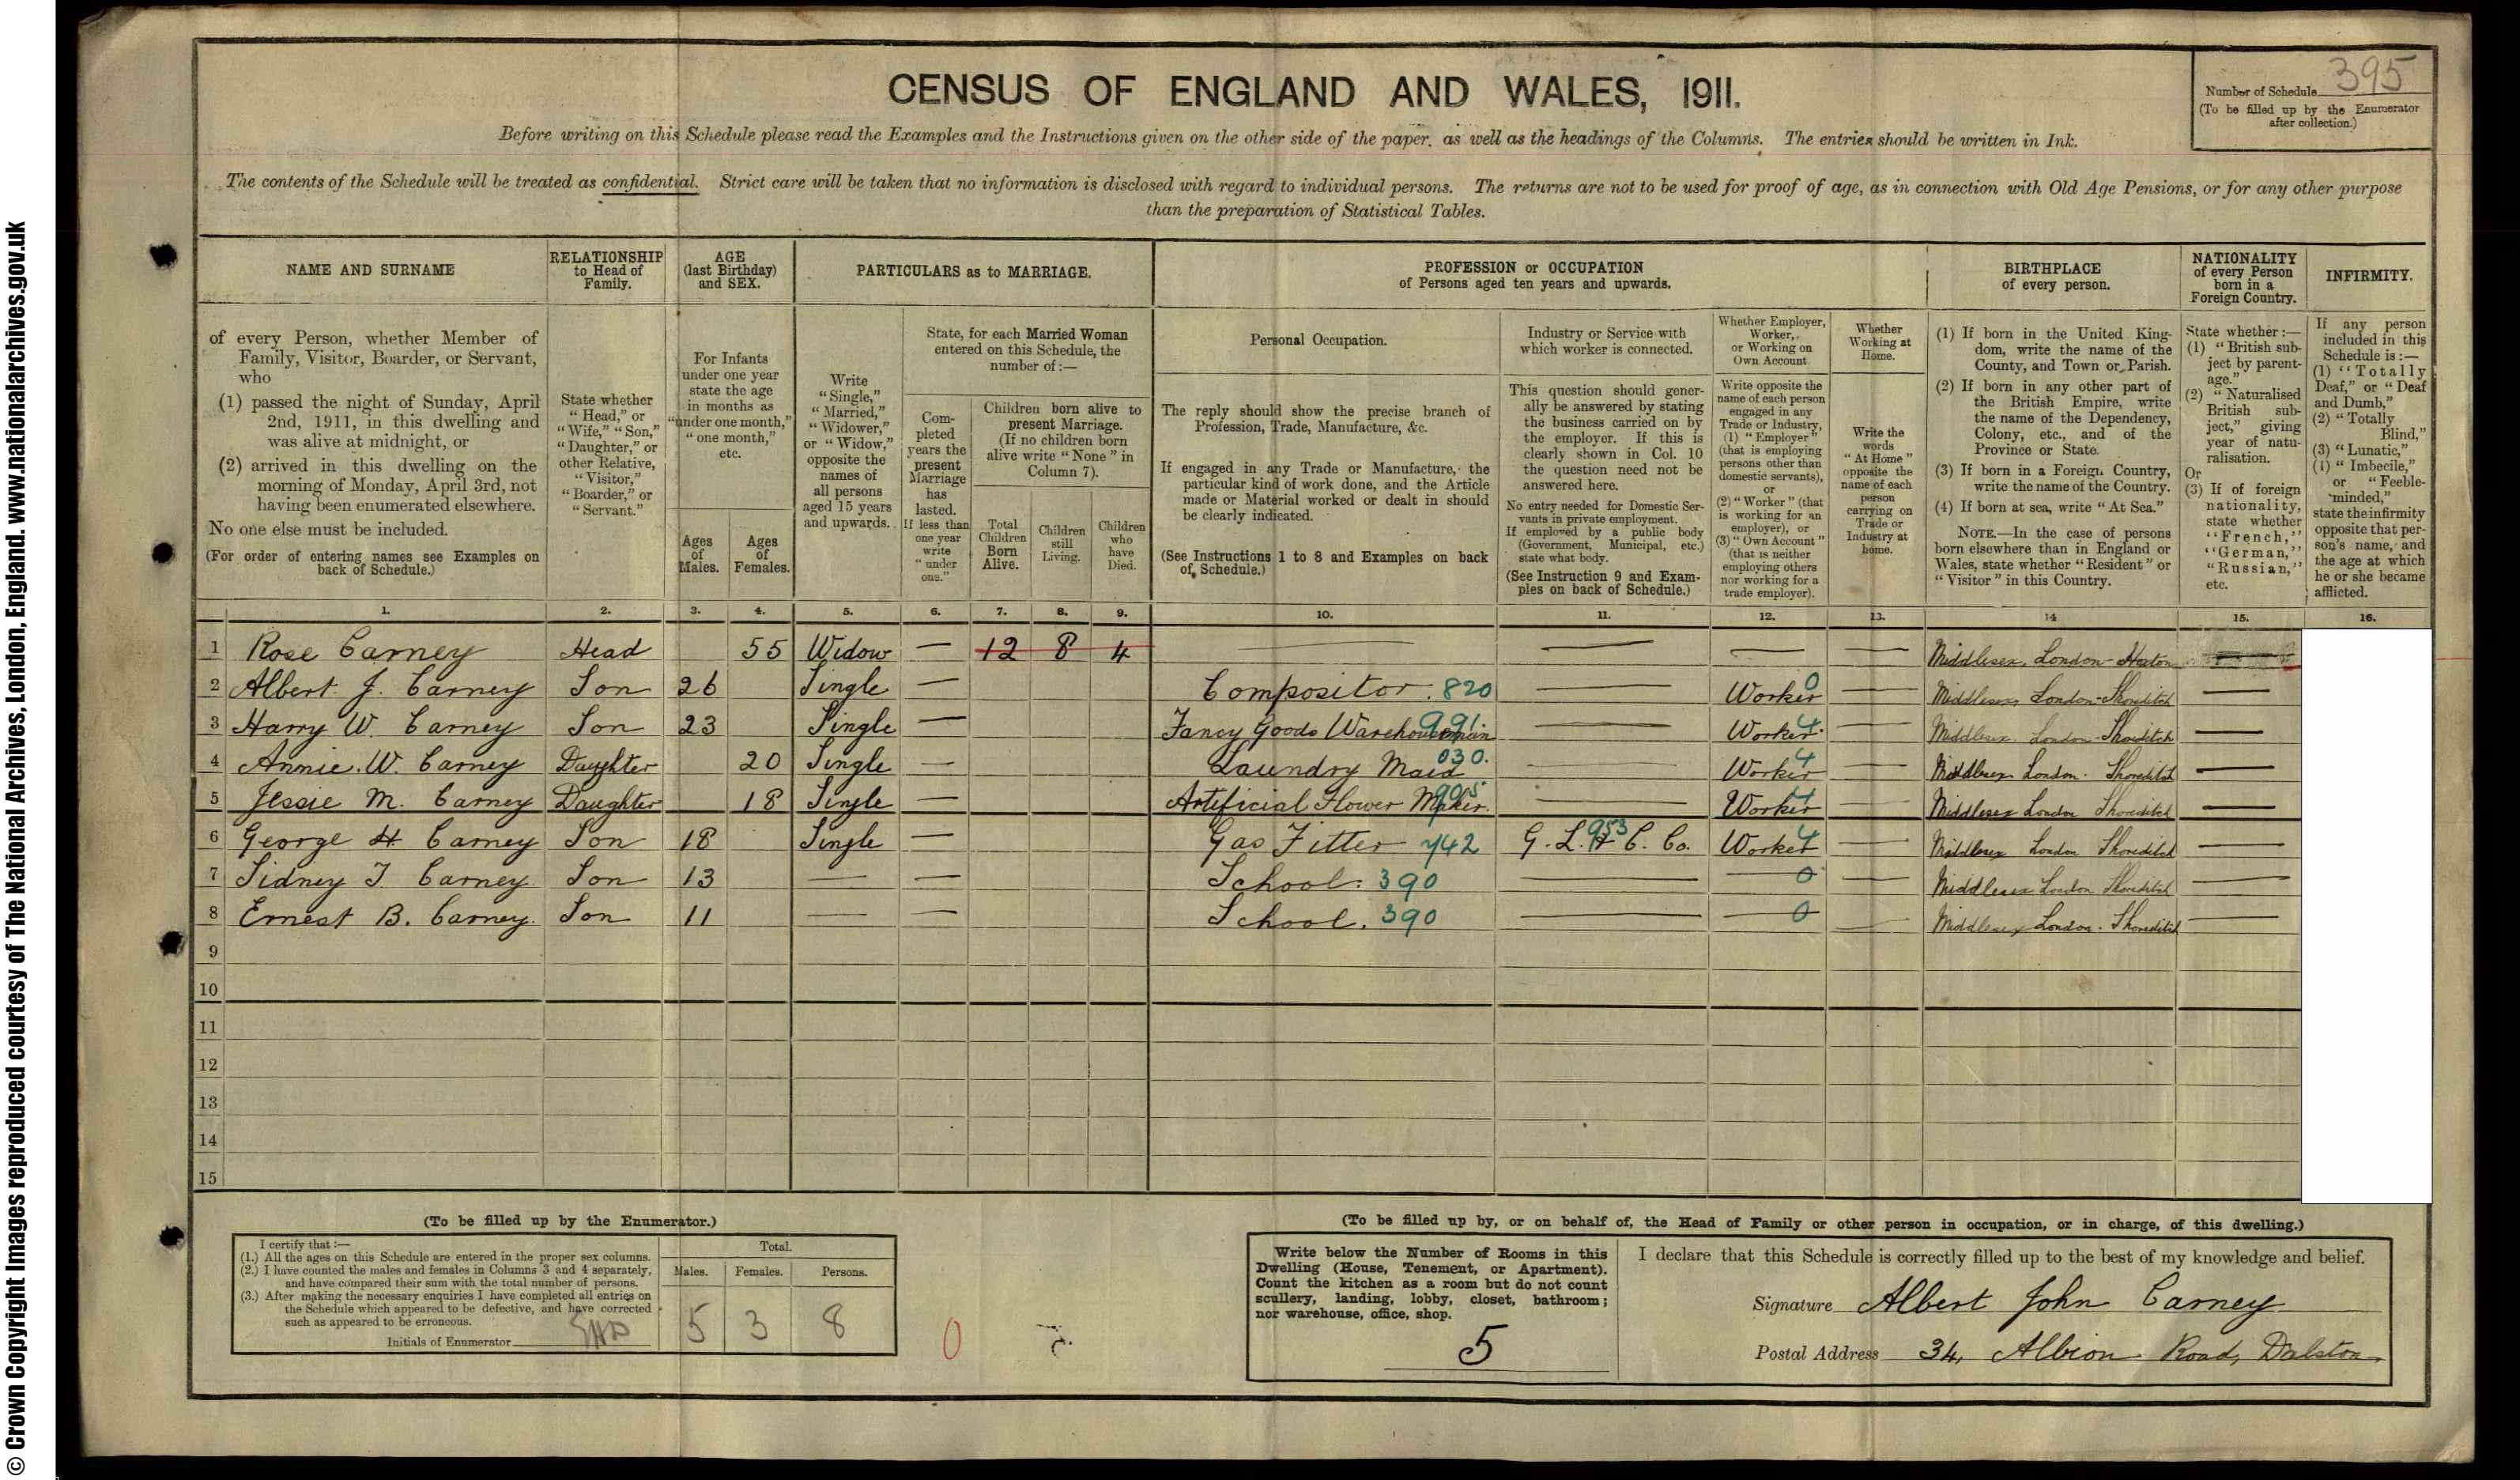 © Crown Copyright Images reproduced courtesy of The National Archives, London, England. www.nationalarchives.gov.uk
CENSUS OF ENGLAND AND WALES, 1911.
Number of Schedule 395
(To be filled up by the Enumerator
after collection.)
Before writing on this Schedule please read the Examples and the Instructions given on the other side of the paper, as well as the headings of the Columns. The entries should be written in Ink.
The contents of the Schedule will be treated as confidential. Strict care will be taken that no information is disclosed with regard to individual persons. The returns are not to be used for proof of age, as in connection with Old Age Pensions, or for any other purpose
than the preparation of Statistical Tables.
NAME AND SURNAME
of every Person, whether Member of
Family, Visitor, Boarder, or Servant,
who
(1) passed the night of Sunday, April
2nd, 1911, in this dwelling and
was alive at midnight, or
(2) arrived in this dwelling on the
morning of Monday, April 3rd, not
having been enumerated elsewhere.
No one else must be included.
(For order of entering names see Examples on
back of Schedule.)
RELATIONSHIP
to Head of
Family.
State whether
"Head," or
"Wife," "Son,"
"Daughter," or
other Relative,
"Visitor,"
"Boarder," or
"Servant."
AGE
(last Birthday)
and SEX.
For Infants
under one year
state the age
in months as
"under one month,"
"one month,"
etc.
Ages
of
Males.
Ages
of
Females.
PARTICULARS as to MARRIAGE.
Write
"Single,"
"Married,"
"Widower,"
or "Widow,"
opposite the
names of
all persons
aged 15 years
and upwards.
State, for each Married Woman
entered on this Schedule, the
number of:—
Com-
pleted
years the
present
Marriage
has
lasted.
If less than
one year
write
"under
one."
Children born alive to
present Marriage.
(If no children born
alive write "None" in
Column 7).
Total
Children
Born
Alive.
Children
still
Living.
Children
who
have
Died.
PROFESSION or OCCUPATION
of Persons aged ten years and upwards.
Personal Occupation.
The reply should show the precise branch of
Profession, Trade, Manufacture, &c.
If engaged in any Trade or Manufacture, the
particular kind of work done, and the Article
made or Material worked or dealt in should
be clearly indicated.
(See Instructions 1 to 8 and Examples on back
of Schedule.)
Industry or Service with
which worker is connected.
This question should gener-
ally be answered by stating
the business carried on by
the employer. If this is
clearly shown in Col. 10
the question need not be
answered here.
No entry needed for Domestic Ser-
vants in private employment.
If employed by a public body
(Government, Municipal, etc.)
state what body.
(See Instruction 9 and Exam-
ples on back of Schedule.)
Whether Employer,
Worker,
or Working on
Own Account
Write opposite the
name of each person
engaged in any
Trade or Industry,
(1) "Employer"
(that is employing
persons other than
domestic servants),
or
(2) "Worker" (that
is working for an
employer), or
(3) "Own Account"
(that is neither
employing others
nor working for a
trade employer).
Whether
Working at
Home.
Write the
words
"At Home"
opposite the
name of each
person
carrying on
Trade or
Industry at
home.
BIRTHPLACE
of every person.
(1) If born in the United King-
dom, write the name of the
County, and Town or Parish.
(2) If born in any other part of
the British Empire, write
the name of the Dependency,
Colony, etc., and of the
Province or State.
(3) If born in a Foreign Country,
write the name of the Country.
(4) If born at sea, write "At Sea."
NOTE.—In the case of persons
born elsewhere than in England or
Wales, state whether "Resident" or
"Visitor" in this Country.
NATIONALITY
of every Person
born in a
Foreign Country.
State whether:—
(1) "British sub-
ject by parent-
age."
(2) "Naturalised
British sub-
ject," giving
year of natu-
ralisation.
Or
(3) If of foreign
nationality,
state whether
"French,"
"German,"
"Russian,"
etc.
INFIRMITY.
If any person
included in this
Schedule is:—
(1) "Totally
Deaf," or "Deaf
and Dumb,"
(2) "Totally
Blind,"
(3) "Lunatic,"
(4) "Imbecile,"
or "Feeble-
minded,"
state the infirmity
opposite that per-
son's name, and
the age at which
he or she became
afflicted.
1. 2. 3. 4. 5. 6. 7. 8. 9. 10. 11. 12. 13. 14 15. 16.
1 Rose Carney Head 55 Widow — 12 8 4 — — — — Middlesex, London - Hoxton
2 Albert J. Carney Son 26 Single — Compositor. 820 — Worker 0 — Middlesex, London - Shoreditch —
3 Harry W. Carney Son 23 Single — Fancy Goods Warehouseman 991. — Worker 4 — Middlesex London - Shoreditch —
4 Annie. W. Carney Daughter 20 Single — Laundry Maid 030. — Worker 4 — Middlesex London. Shoreditch —
5 Jessie M. Carney Daughter 18 Single — Artificial Flower Maker. 905 — Worker 4 — Middlesex London Shoreditch —
6 George H Carney Son 18 Single — Gas Fitter 742 G. L. & C. Co. 953 Worker 4 — Middlesex London Shoreditch —
7 Sidney T Carney Son 13 — — School. 390 — — 0 — Middlesex London Shoreditch —
8 Ernest B. Carney. Son 11 — — School. 390 — — 0 — Middlesex London. Shoreditch —
9
10
11
12
13
14
15
(To be filled up by the Enumerator.)
I certify that:—
(1.) All the ages on this Schedule are entered in the proper sex columns.
(2.) I have counted the males and females in Columns 3 and 4 separately,
and have compared their sum with the total number of persons.
(3.) After making the necessary enquiries I have completed all entries on
the Schedule which appeared to be defective, and have corrected
such as appeared to be erroneous.
Initials of Enumerator
Total.
Males. Females. Persons.
5 3 8
0
(To be filled up by, or on behalf of, the Head of Family or other person in occupation, or in charge, of this dwelling.)
Write below the Number of Rooms in this
Dwelling (House, Tenement, or Apartment).
Count the kitchen as a room but do not count
scullery, landing, lobby, closet, bathroom;
nor warehouse, office, shop.
5
I declare that this Schedule is correctly filled up to the best of my knowledge and belief.
Signature Albert John Carney
Postal Address 34, Albion Road, Dalston